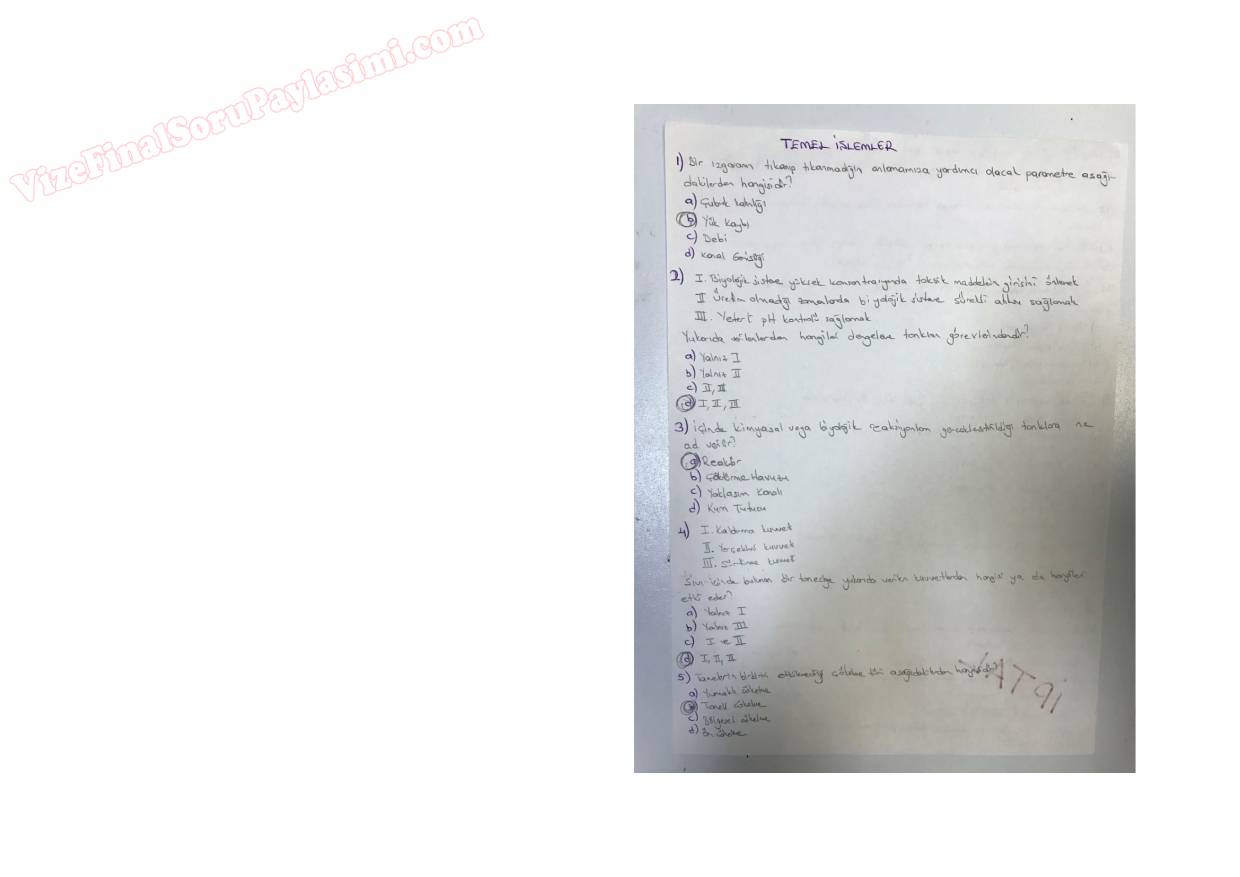 VizeFinalSoruPaylasimi.com
TEMEL İŞLEMLER
1) Bir ızgaranın tıkanıp tıkanmadığın anlamamıza yardımcı olacak parametre aşağı-
dakilerden hangisidir?
a) Çubuk kalınlığı
b) Yük Kaybı
c) Debi
d) Kanal Genişliği
2) I. Biyolojik sisteme yüksek konsantrasyonda toksik maddelerin girişini önlemek
II Üretim olmadığı zamanlarda biyolojik sisteme sürekli akım sağlamak
III. Yeterli pH kontrolü sağlamak
Yukarıda verilenlerden hangileri dengeleme tankının görevlerindendir?
a) Yalnız I
b) Yalnız II
c) II, III
d) I, II, III
3) İçinde kimyasal veya biyolojik reaksiyonların gerçekleştirildiği tanklara ne
ad verilir?
a) Reaktör
b) Çöktürme Havuzu
c) Yaklaşım Kanalı
d) Kum Tutucu
4) I. Kaldırma kuvveti
II. Yerçekimi kuvveti
III. Sürtünme kuvveti
Sıvı içinde bulunan bir taneciğe yukarıda verilen kuvvetlerden hangisi ya da hangileri
etki eder?
a) Yalnız I
b) Yalnız III
c) I ve II
d) I, II, III
5) Tanelerin birbirini etkilemediği çökelme türü aşağıdakilerden hangisidir?
a) Yumaklı çökelme
b) Taneli çökelme
c) Bölgesel çökelme
d) Ön çökelme